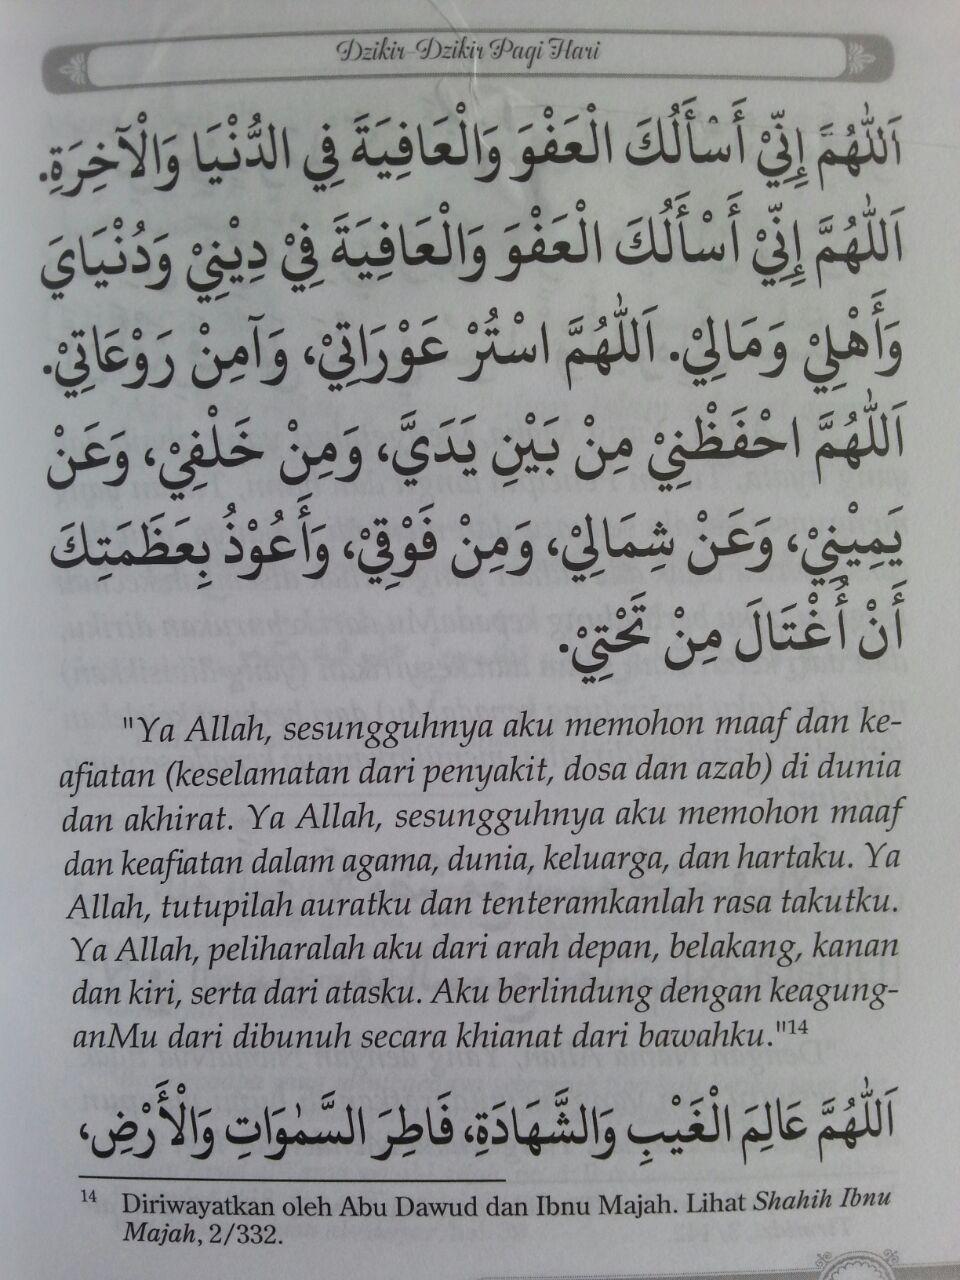 Dzikir-Dzikir Pagi Hari
اَللّٰهُمَّ إِنِّيْ أَسْأَلُكَ الْعَفْوَ وَالْعَافِيَةَ فِي الدُّنْيَا وَالْآخِرَةِ.
اَللّٰهُمَّ إِنِّيْ أَسْأَلُكَ الْعَفْوَ وَالْعَافِيَةَ فِيْ دِيْنِيْ وَدُنْيَايَ
وَأَهْلِيْ وَمَالِيْ. اَللّٰهُمَّ اسْتُرْ عَوْرَاتِيْ، وَآمِنْ رَوْعَاتِيْ.
اَللّٰهُمَّ احْفَظْنِيْ مِنْ بَيْنِ يَدَيَّ، وَمِنْ خَلْفِيْ، وَعَنْ
يَمِيْنِيْ، وَعَنْ شِمَالِيْ، وَمِنْ فَوْقِيْ، وَأَعُوْذُ بِعَظَمَتِكَ
أَنْ أُغْتَالَ مِنْ تَحْتِيْ.
"Ya Allah, sesungguhnya aku memohon maaf dan ke-
afiatan (keselamatan dari penyakit, dosa dan azab) di dunia
dan akhirat. Ya Allah, sesungguhnya aku memohon maaf
dan keafiatan dalam agama, dunia, keluarga, dan hartaku. Ya
Allah, tutupilah auratku dan tenteramkanlah rasa takutku.
Ya Allah, peliharalah aku dari arah depan, belakang, kanan
dan kiri, serta dari atasku. Aku berlindung dengan keagung-
anMu dari dibunuh secara khianat dari bawahku."14
اَللّٰهُمَّ عَالِمَ الْغَيْبِ وَالشَّهَادَةِ، فَاطِرَ السَّمٰوَاتِ وَالْأَرْضِ،
14 Diriwayatkan oleh Abu Dawud dan Ibnu Majah. Lihat Shahih Ibnu
Majah, 2/332.